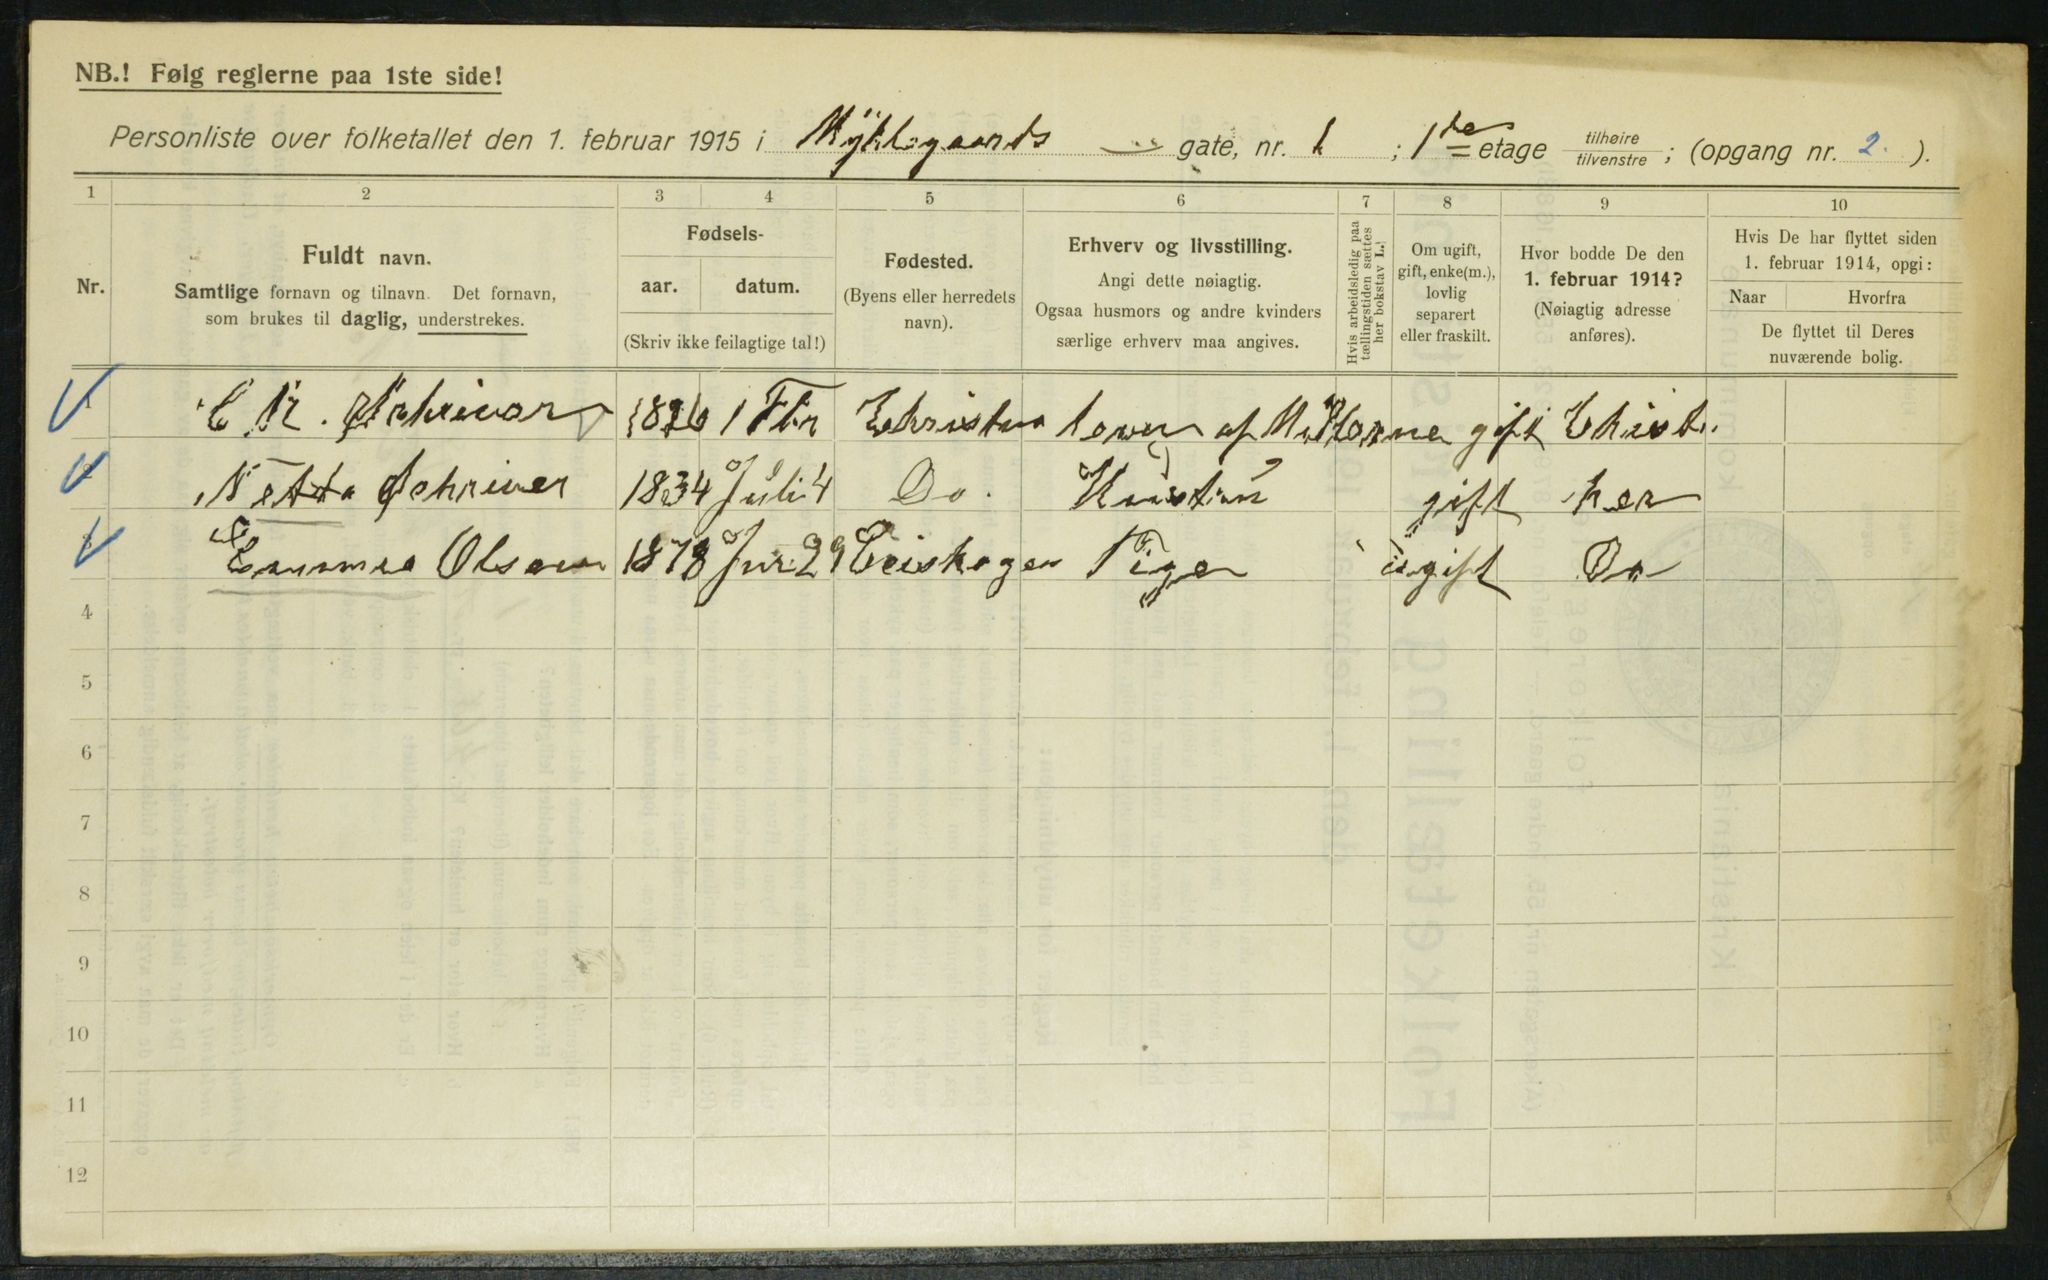 NB.! Følg reglerne paa 1ste side!
Personliste over folketallet den 1. februar 1915 i Myklegaards gate, nr. 1 ; 1ste etage tilhøire / tilvenstre ; (opgang nr. 2. ).
1 2 3 4 5 6 7 8 9 10
Nr.
Fuldt navn.
Samtlige fornavn og tilnavn. Det fornavn,
som brukes til daglig, understrekes.
Fødsels-
aar. datum.
(Skriv ikke feilagtige tal!)
Fødested.
(Byens eller herredets
navn).
Erhverv og livsstilling.
Angi dette nøiagtig.
Ogsaa husmors og andre kvinders
særlige erhverv maa angives.
Hvis arbeidsledig paa
tællingstiden sættes
her bokstav L.
Om ugift,
gift, enke(m.),
lovlig
separert
eller fraskilt.
Hvor bodde De den
1. februar 1914?
(Nøiagtig adresse
anføres).
Hvis De har flyttet siden
1. februar 1914, opgi:
Naar Hvorfra
De flyttet til Deres
nuværende bolig.
1 Schriver 1 gift Christ.
2 Netta Schriver 1834 Juli 4 Do. gift her
3 Emma Olsen 1878 29 Pige ugift Do
4
5
6
7
8
9
10
11
12